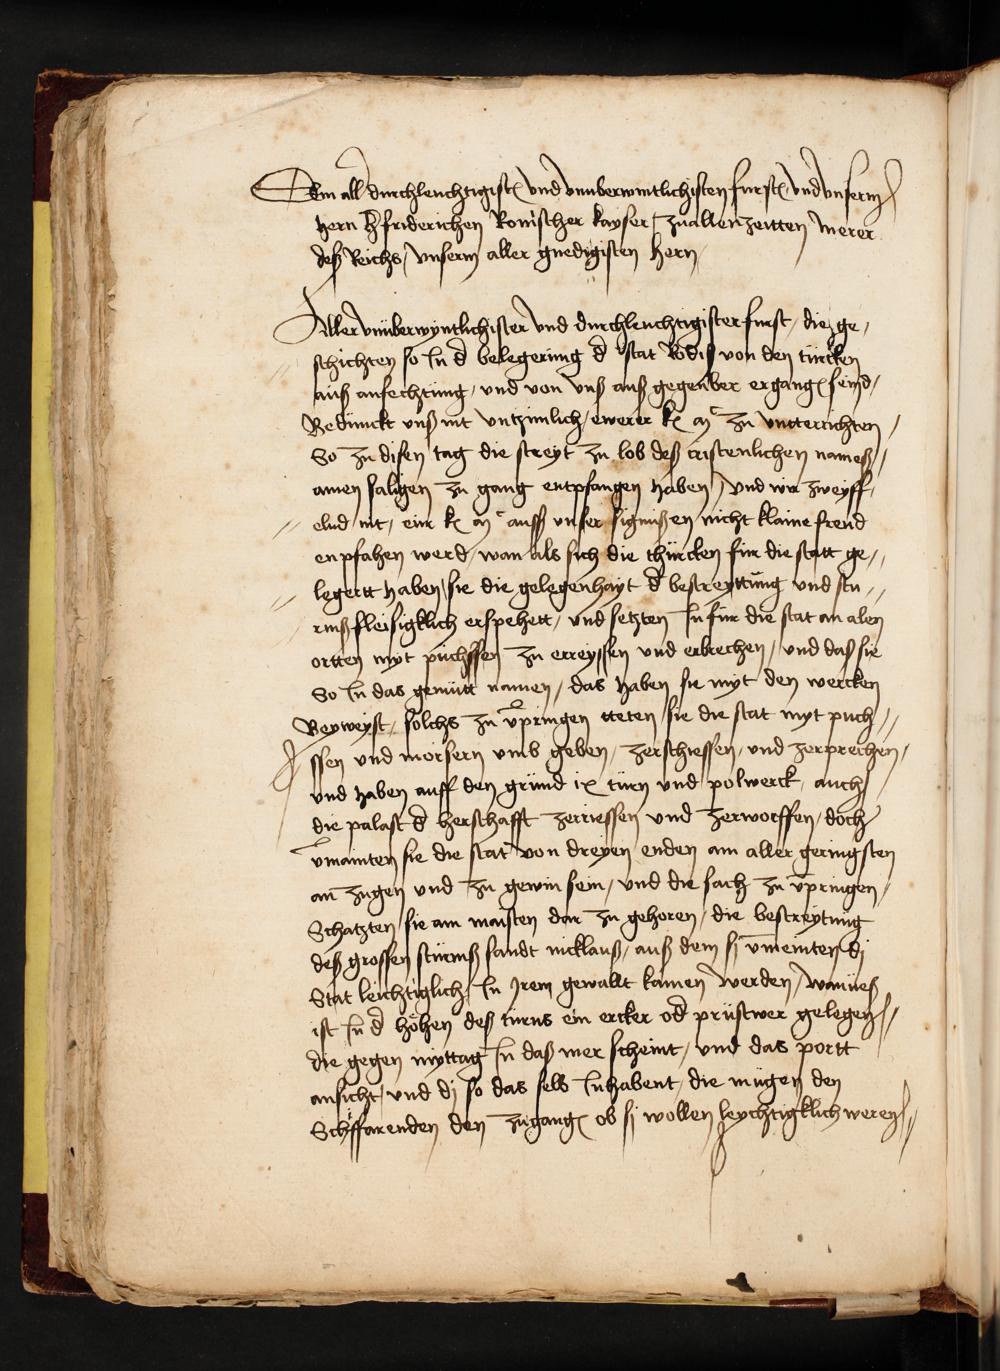 Dem all durchleuchtigist(e) vnd vnuberwintlichisten furst(e) vnd vnserm
hern h friderichen Romischer kayser / zuallen zeitten merer
deß Reichs / vnserm aller gnedigisten hern
Aller vnüberwyntlichister vnd durchleuchtigister furst / die ge /
schichten so In d belegerung d stat Rodis von den türcken
auß anfechtung / vnd von vnß auß gegenber ergang(e) seind /
Bedünckt vnß nit vntzimlich / ewerer k(e) m zu vnterrichten /
So zu disen tag die streyt zu lob deß cristenlichen nameß /
ainen saligen zu gang entpfangen haben / vnd wir zweyff /
elnd nit / eür k(e) m auß vnser signüßen nicht klaine freud
enpfahen werd / wan als sich die thürcken für die statt ge /
legertt haben / sie die gelegenhayt d bestreyttüng vnd stu /
rmß fleisigklich erspehett / vnd setzten In für die stat an alen
ortten myt püchssen zu erreyssen vnd erbrechen / vnd das sie
So In das gemütt namen / das haben sie myt den wercken
Beyweyst / solchs zu vpringen tteten sie die stat myt puch /
ssen vnd morsern vmb geben / zerschiessen / vnd zerprechen /
vnd haben auff den grund ix türn vnd polwerck / auch
die palast d herschafft zerriessen vnd zerworffen / doch
vmainten sie die stat von dreyen enden am aller geringsten
an zugen vnd zu gewin sein / vnd die sach zu vpringen /
Schatzten sie am maisten dar zu gehoren / die bestreytung
deß grossen stürmß sandt nicklauß / auß dem sj vmeinten dj
Stat leichtiglich In Jrem gewallt kamen werden / wan
ist In d höhen deß türns ein ercker od prüstwer gelegen /
die gegen myttag In daß mer scheint / vnd das portt
ansicht / vnd dj so das selb Inhabent / die mügen den
Schiffarenden den zugang(e) ob sj wollen leychtigklich weren /